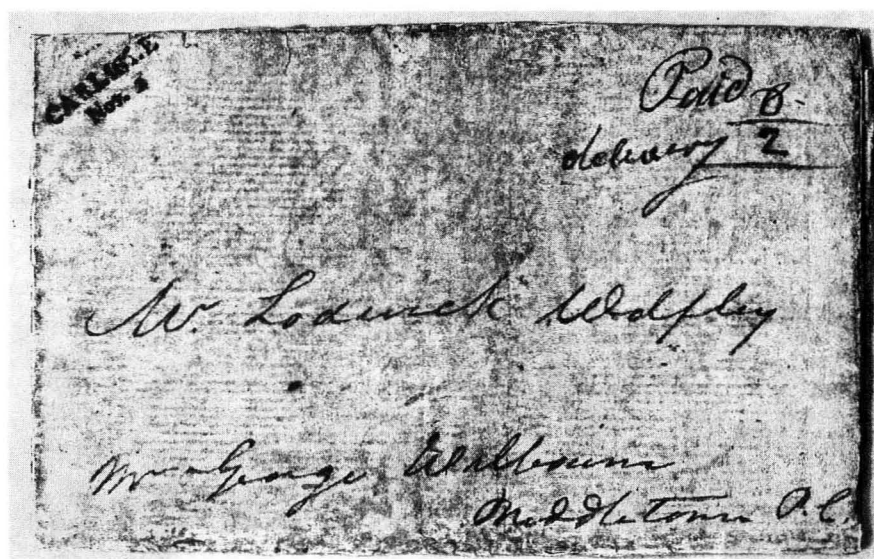 CARLISLE
Nov. 5
Paid 8
delivery 2
Mr. Lodwick Wolfley
George
Middletown P. C.